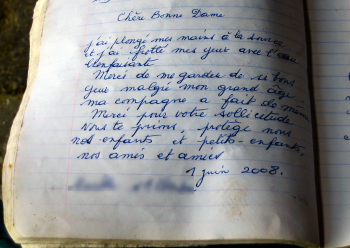 Chère Bonne Dame
j'ai plongé mes mains à la source
et j'ai frotté mes yeux avec l'eau
bienfaisante
Merci de me garder de si bons
yeux malgré mon grand âge
ma compagne a fait de même
Merci pour votre sollicitude
Nous te prions, protège nous
nos enfants et petits-enfants,
nos amis et amies
1 juin 2008.